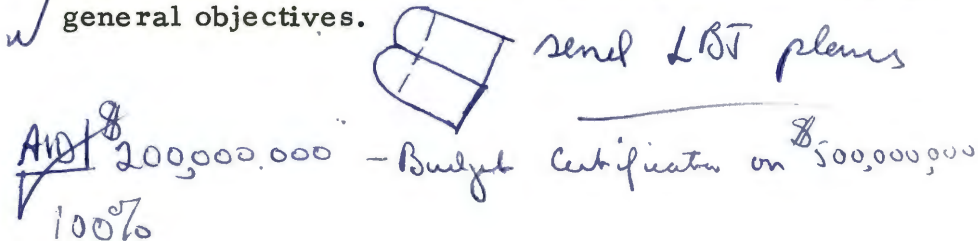 general objectives.
send LBJ plans
AID $200,000.000 - Budget Certification on $500,000,000
100%